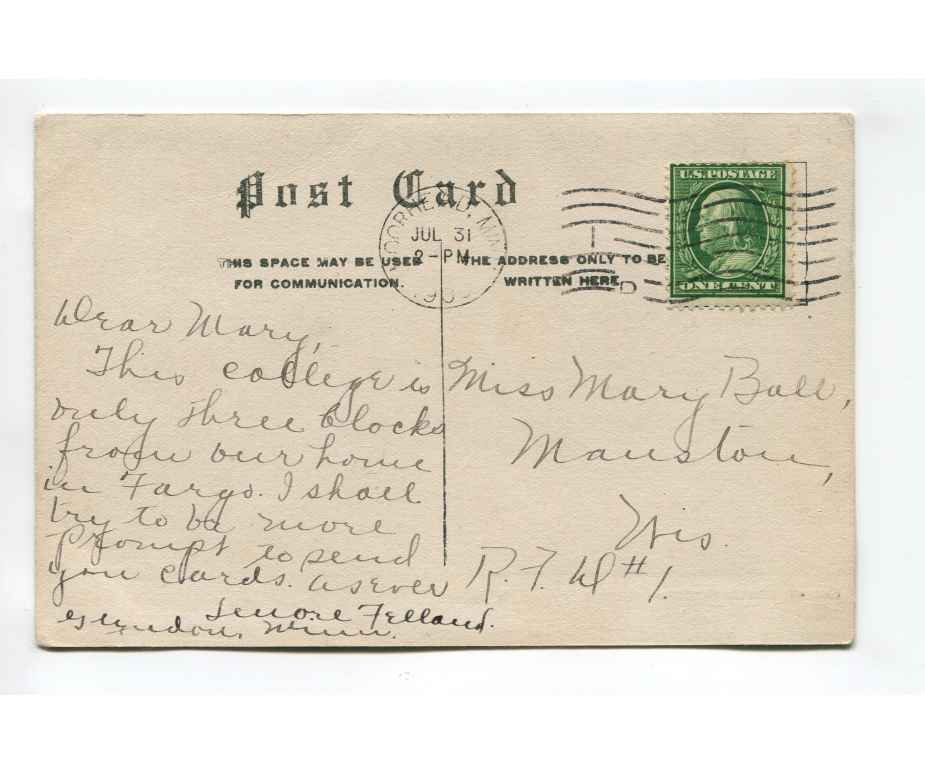 Post Card
MOORHEAD, MINN.
JUL 31
2-PM
190
THIS SPACE MAY BE USED
FOR COMMUNICATION.
THE ADDRESS ONLY TO BE
WRITTEN HERE.
U.S. POSTAGE
ONE CENT
D
Dear Mary,
This college is
only three blocks
from our home
in Fargo. I shall
try to be more
prompt to send
you cards. as ever
Lenore Felland.
Glyndon, Minn.
Miss Mary Ball,
Mauston,
Wis.
R. F. D #1.